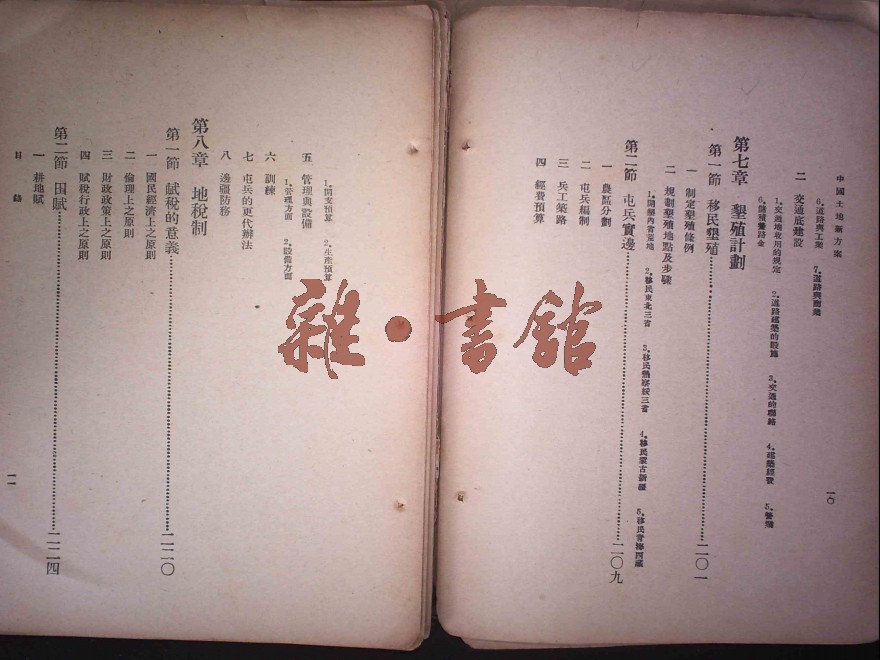 中國土地新方案
一〇
6.道路與工業 7.道路與商業
二 交通底建設
1.交通地收用的規定 2.道路建築的設施 3.交通的聯絡 4.建築經費 5.營業
6.儲積養路金
第七章 墾殖計劃
第一節 移民墾殖……二〇一
一 制定墾殖條例
二 規劃墾殖地點及步驟
1.開墾內省荒地 2.移民東北三省 3.移民熱察綏三省 4.移民蒙古新疆 5.移民青海西藏
第二節 屯兵實邊……二〇九
一 農區分劃
二 屯兵編制
三 兵工築路
四 經費預算
1.開支預算 2.生產預算
五 管理與設備
1.管理方面 2.設備方面
六 訓練
七 屯兵的更代辦法
八 邊疆防務
第八章 地稅制
第一節 賦稅的意義……二二〇
一 國民經濟上之原則
二 倫理上之原則
三 財政政策上之原則
四 賦稅行政上之原則
第二節 田賦……二二四
一 耕地賦
目錄
一一
雜·書館